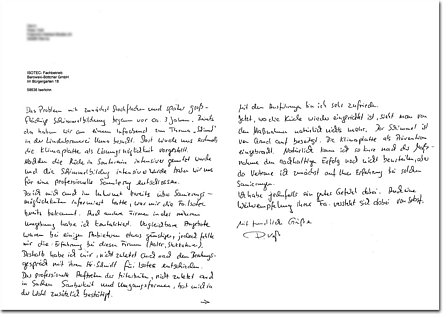 ISOTEC-Fachbetrieb
Im Bürgergarten 16
Das Problem mit zunächst Stockflecken und später groß-
flächig Schimmelbildung begann vor ca. 3 Jahren. Zuerst
da haben wir an einem Infostand zum Thema „Schimmel“
besucht. Dort wurde uns erstmals
die Klimaplatte als Lösungsmöglichkeit vorgestellt.
Nachdem die Küche in intensiver genutzt wurde
und die Schimmelbildung intensiver wurde haben wir uns
für eine professionelle Sanierung entschlossen.
Da ich mich auch im Internet bereits über Sanierungs-
möglichkeiten informiert hatte, war mir die Fa. Isotec
bereits bekannt. Auch andere Firmen in der näheren
Umgebung habe ich kontaktiert. Vergleichbare Angebote
waren bei einigen Anbietern etwas günstiger, jedoch fehlte
mir die Erfahrung bei diesen Firmen (Maler, Stukkateur).
Deshalb habe ich mich, nicht zuletzt auch nach dem Beratungs-
gespräch mit Ihrem für Isotec entschieden.
Das professionelle Auftreten der Mitarbeiter, nicht zuletzt auch
in Sachen Sauberkeit und Umgangsformen, hat mich in
der Wahl zusätzlich bestätigt.
Mit den Ausführungen bin ich sehr zufrieden.
Jetzt, wo die Küche wieder eingerichtet ist, sieht man von
den Maßnahmen natürlich nichts mehr. Der Schimmel ist
von Grund auf beseitigt. Die Klimaplatte als Prävention
eingebracht. Natürlich kann ich so kurz nach der Maß-
nahme den nachhaltigen Erfolg noch nicht beurteilen, aber
da vertraue ich zunächst auf Ihre Erfahrung bei solchen
Sanierungen.
Ich habe jedenfalls ein gutes Gefühl dabei. Und eine
Weiterempfehlung Ihrer Fa. versteht sich dabei von selbst.
Mit freundlichen Grüßen